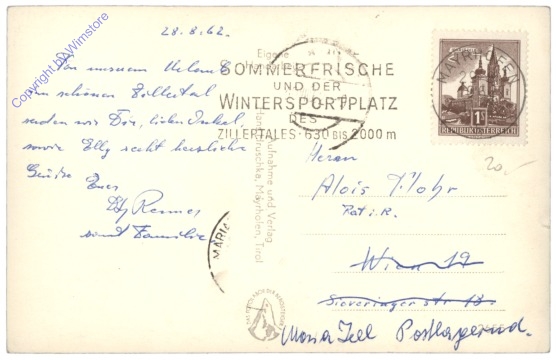 28.8.62.
Von unserem Urlaub
im schönen Zillertal
senden wir Dir, lieber Onkel,
sowie Elly recht herzliche
Grüße Euer
samt Familie
Copyright by AWimstore
Eigene
SOMMERFRISCHE
UND DER
WINTERSPORTPLATZ
DES
ZILLERTALES · 630 BIS 2000 m
Aufnahme und Verlag
Hruschka, Mayrhofen, Tirol
MAYRHOFEN
1S
REPUBLIK ÖSTERREICH
20.-
Herrn
Alois Mohr
Rat i. R.
Wien 19
Sieveringer str. 13.
Maria Zell Postlagernd.
MARIA